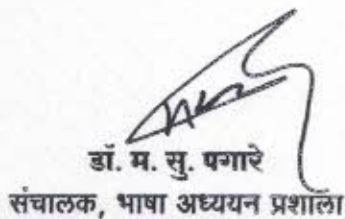 डॉ. म. सु. पगारे
संचालक, भाषा अध्ययन प्रशाला